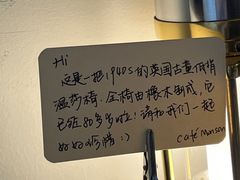 Hi
这是一把1940s的英国古董低背
温莎椅. 全椅由橡木制成, 它
已经好多岁啦! 请和我们一起
好好爱惜 :)
Café Manson